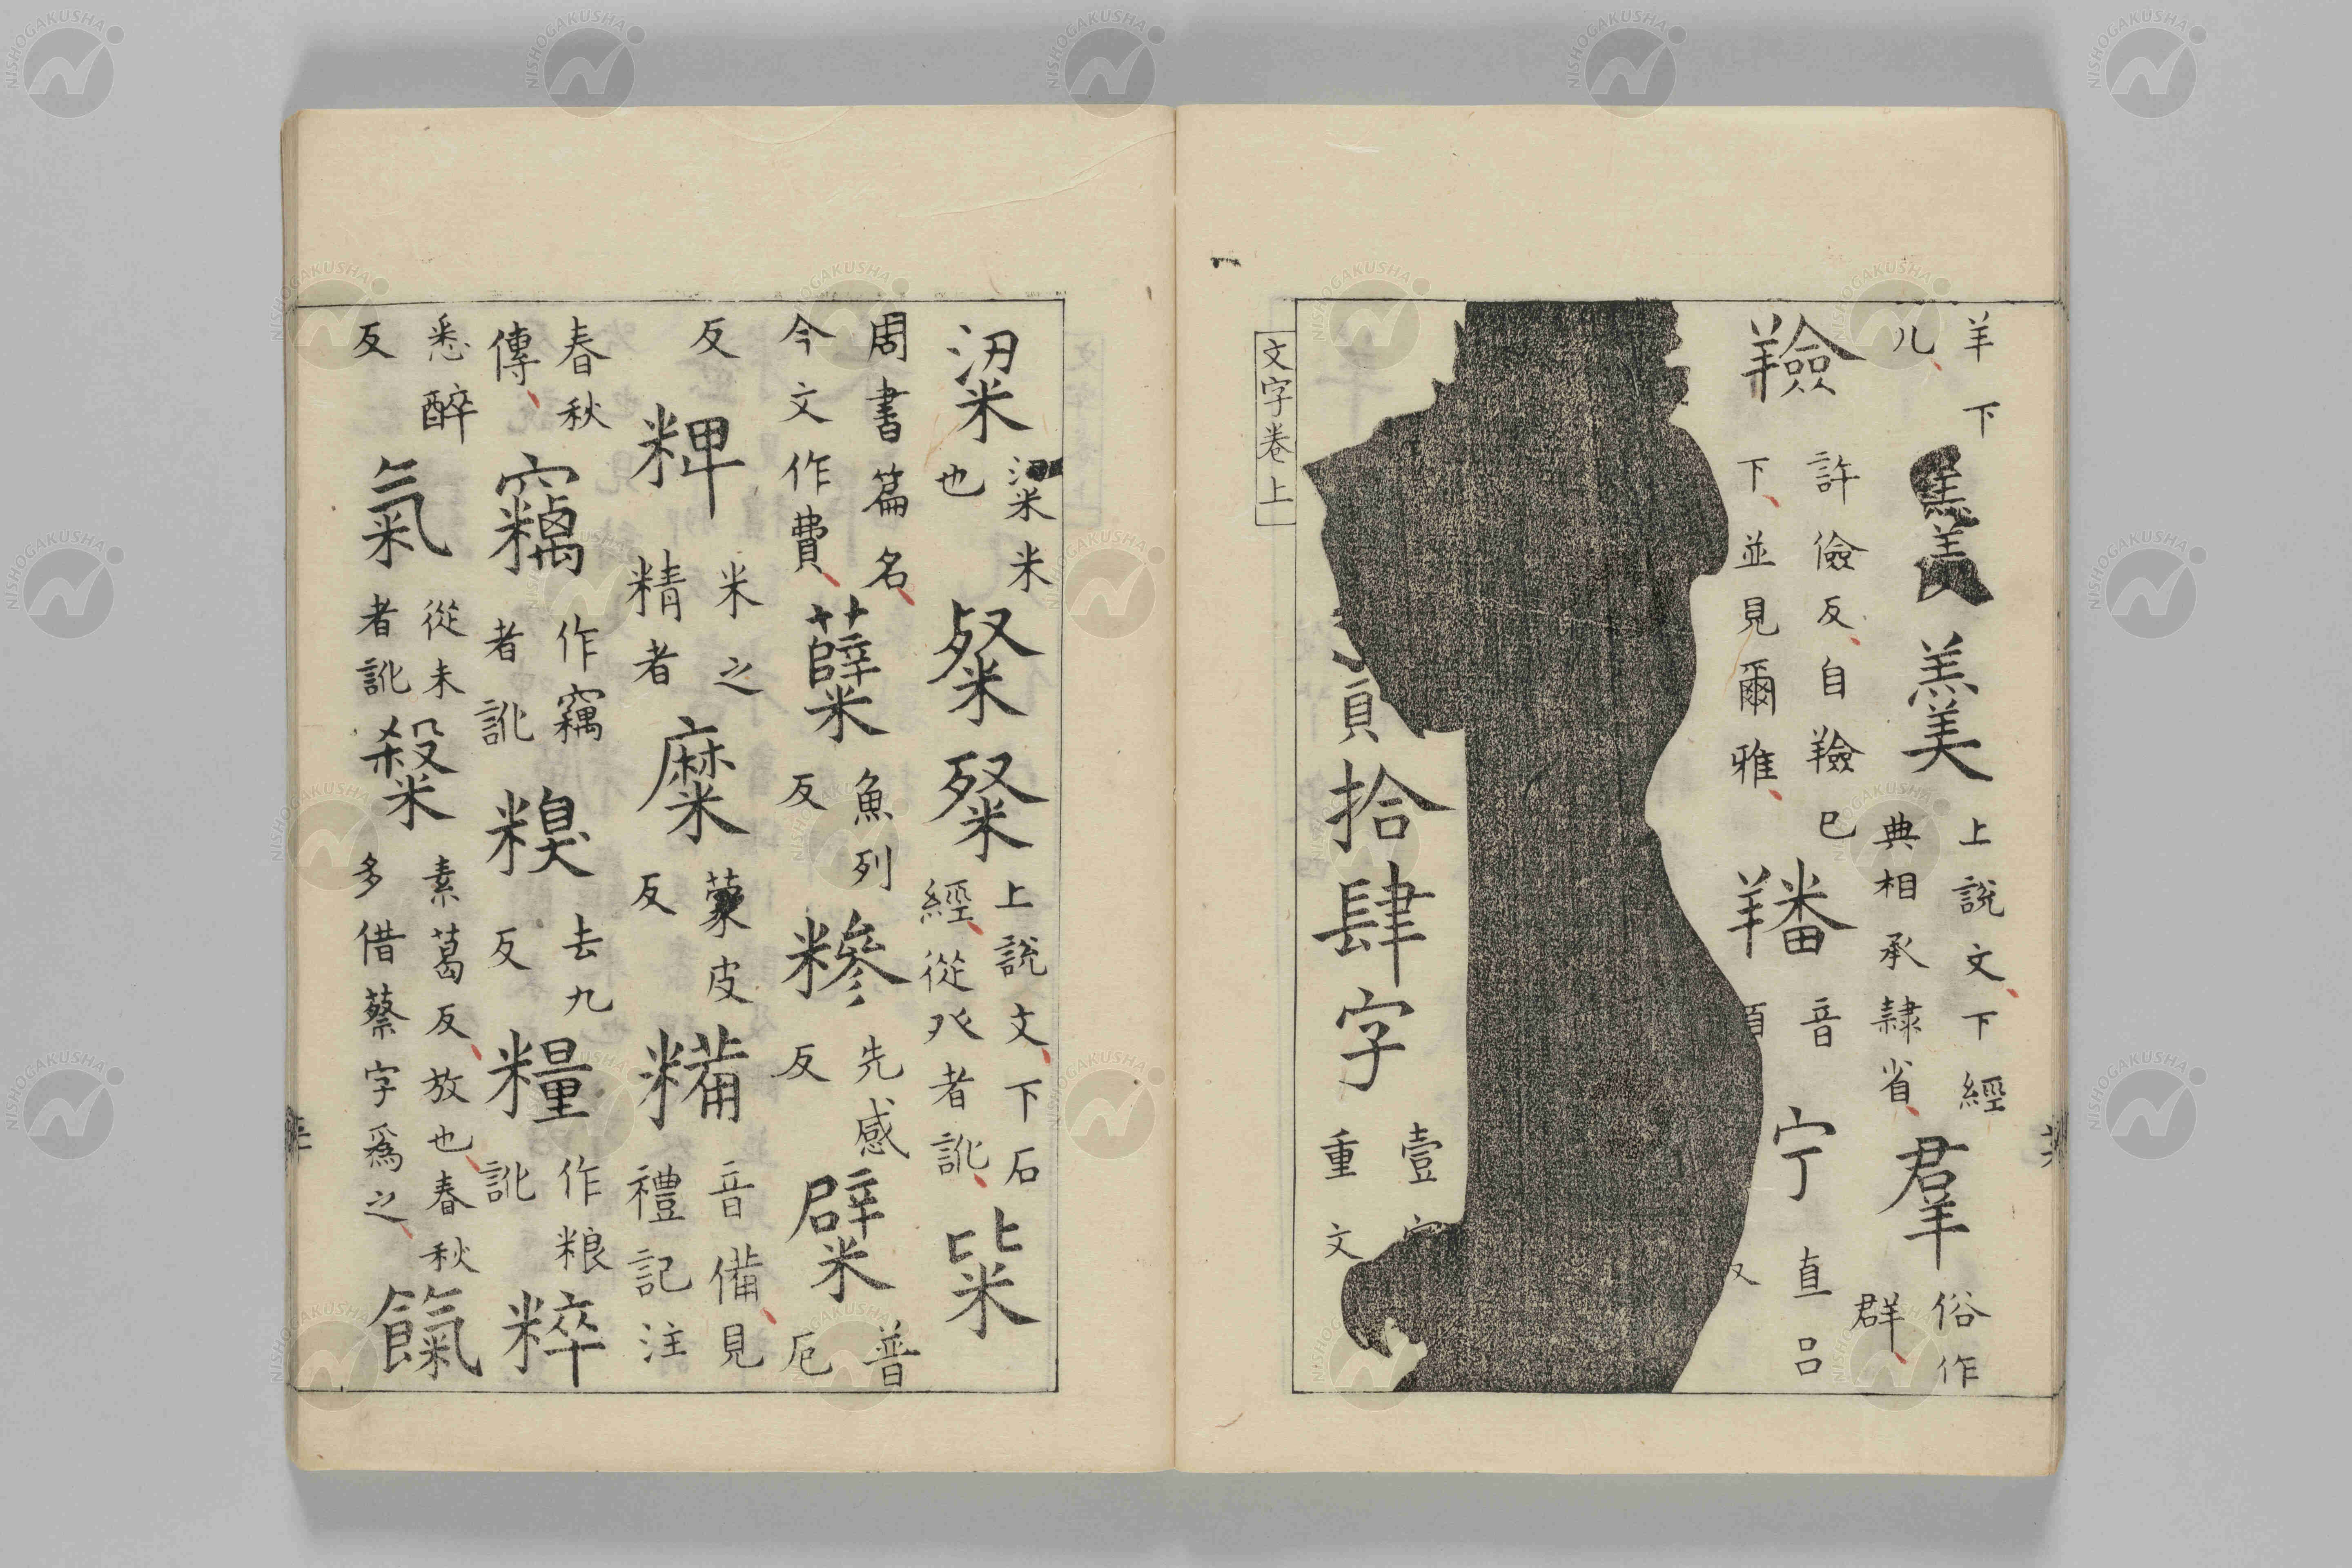 羊下
儿
羹
羹
上說文下經
典相承隸省
羣
俗作
群
羷
許儉反自羷已
下並見爾雅
羳
音
宁
直呂
反
拾肆字
壹字
重文
文字卷上
粱
粱米
也
粲
上說文下石
經從歺者訛
粊
周書篇名
今文作費
糱
魚列
反
糝
先感
反
糪
普
厄
反
粺
米之
精者
糜
蒙皮
反
糒
音備見
禮記注
春秋
傳
竊
作竊
者訛
糗
去九
反
糧
作粮
訛
粹
悉醉
反
氣
從未
者訛
𥻦
素葛反放也春秋
多借蔡字爲之
餼
NISHOGAKUSHA